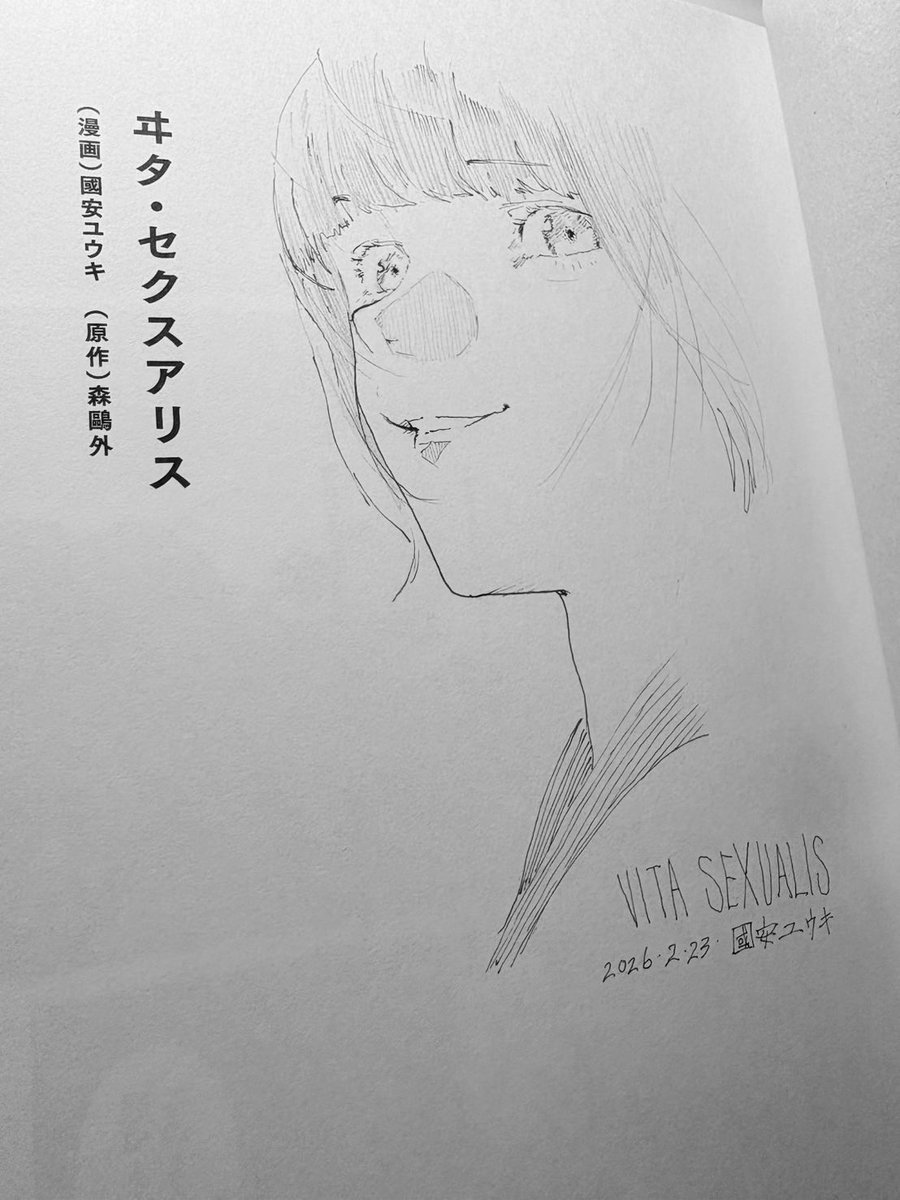 ヰタ・セクスアリス
（漫画）國安ユウキ　（原作）森鷗外
VITA SEXUALIS
2026.2.23. 國安ユウキ